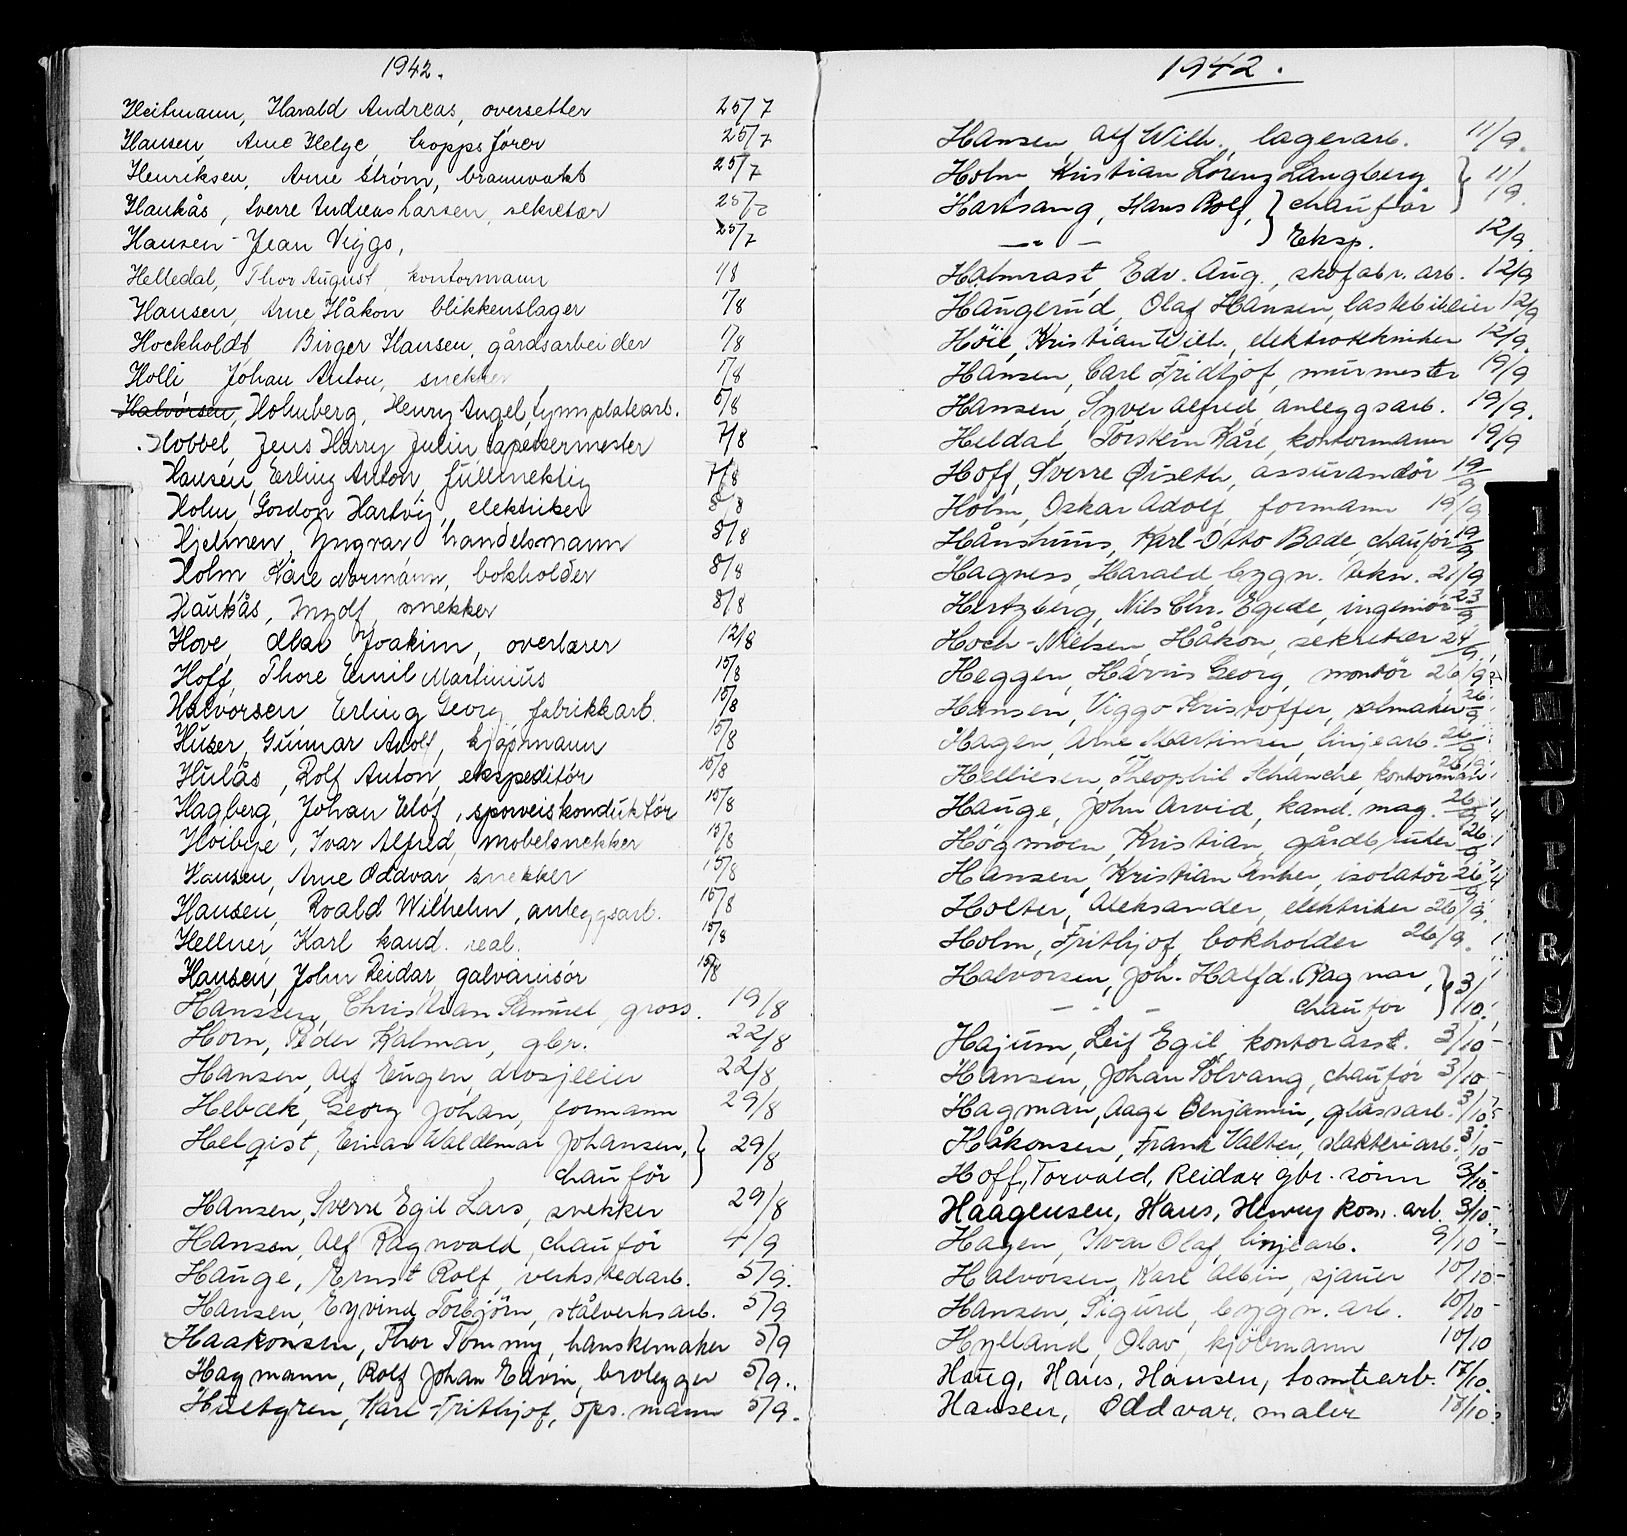 1942.
Heitmann, Harald Andreas, oversetter 25/7
Hansen, Arne Helge, troppsfører 25/7
Henriksen, Arne Strøm, brannvakt 25/7
Haukås, Sverre Andreas Larsen, sekretær 25/7
Hansen - Jean Viggo, 25/7
Helledal, Thor August, kontormann 1/8
Hansen, Arne Håkon blikkenslager 1/8
Hockholdt Birger Hansen, gårdsarbeider 1/8
Holli Johan Anton, snekker 1/8
Halvorsen, Holmberg, Henry Angel, gymplatearb. 5/8
Hobbel, Jens Harry Julin, tapetsermester 7/8
Hansen, Erling Anton, fullmektig 7/8
Holm, Gordon Hartvig, elektriker 8/8
Hjelmen, Yngvar handelsmann 8/8
Holm Kåre Normann, bokholder 8/8
Haukås, Ingolf, snekker 8/8
Hove, Olai Joakim, overlærer 12/8
Hoff, Thore Emil Martinius 15/8
Halvorsen, Erling Georg, fabrikkarb. 15/8
Huser, Gunnar Adolf, kjøpmann 15/8
Hulås, Rolf Anton, ekspeditør 15/8
Hagberg, Johan Elof, sporveiskonduktør 15/8
Hoibye, Ivar Alfred, møbelsnekker 15/8
Hansen, Arne Oddvar, snekker 15/8
Hansen, Roald Wilhelm, anleggsarb. 15/8
Hellner, Karl kand. real. 15/8
Hansen, John Reidar, galvanisør 15/8
Hanssen, Christian Samuel, gross. 19/8
Horn, Peder Kalmar, gbr. 22/8
Hansen, Alf Eugen, drosjeeier 22/8
Hebæk, Georg Johan, formann 29/8
Helqist, Einar Waldemar Johansen, } 29/8
chauför
Hansen, Sverre Egil Lars, snekker 29/8
Hansen, Alf Ragnvald, chauför 4/9
Hauge, Ernst Rolf, verkstedarb. 5/9.
Hansen, Eyvind Torbjörn, stålverksarb. 5/9
Haakonsen, Thor Tommy, hanskemaker 5/9
Hagmann, Rolf Johan Edvin, brolegger 5/9.
Hultgren, Karl Frithjof, ops. mann 5/9.
1942.
Hansen, Alf Wilh., lagerarb. 11/9.
Holm Kristian Lorenz Langberg } 11/9.
Hartsang, Hans Rolf, } chauför
— " — } Eksp. 12/9.
Halmrast, Edv. Aug., skofabr. arb. 12/9
Haugerud, Olaf Hansen, lastebileier 12/9
Höie, Kristian Wilh., elektrotekniker 12/9.
Hansen, Carl Fridtjof, murmester 19/9
Hansen, Syver Alfred, anleggsarb. 19/9.
Heldal, Torstein Kåre, kontormann 19/9
Hoff, Sverre Øiseth, assurandör 19/9
Holm, Oskar Adolf, formann 19/9
Hånshuus, Karl-Otto Bade, chauför 19/9
Hagness, Harald bygn. tekn. 21/9
Hertzberg, Nils Chr. Egede, ingeniör 23/9
Hoch-Nielsen, Håkon, sekretær 24/9,
Heggen, Harris Georg, montör 26/9
Hansen, Viggo Kristoffer, salmaker 26/9
Hagen, Arne Martinsen, linjearb. 26/9
Helliesen, Theophil Schanche, kontormann 26/9
Hauge, John Arvid, kand. mag. 26/9
Høgmoen, Kristian, gårdbruker 26/9
Hansen, Kristian Anker, isolatör 26/9
Holter, Aleksander, elektriker 26/9.
Holm, Frithjof, bokholder 26/9.
Halvorsen, Joh. Halfd. Ragnar, } 3/10.
— " — chauför
Hajum, Leif Egil kontorasst. 3/10
Hansen, Johan Solvang, chauför 3/10
Hagman, Aage Benjamin, glassarb. 3/10
Håkonsen, Frank Valter, slakteriarb. 3/10
Hoff, Torvald, Reidar gbr. sönn 3/10
Haagensen, Hans, Henry kom. arb. 3/10
Hagen, Ivar Olaf, linjearb. 9/10
Halvorsen, Karl Albin, sjauer 10/10
Hansen, Sigurd, bygn. arb. 10/10
Hylland, Olav, kjöbmann 10/10
Haug, Hans, Hansen, tomtearb. 17/10.
Hansen, Oddvar, maler 17/10
I
J
K
L
M
N
O
P
Q
R
S
T
U
V
W